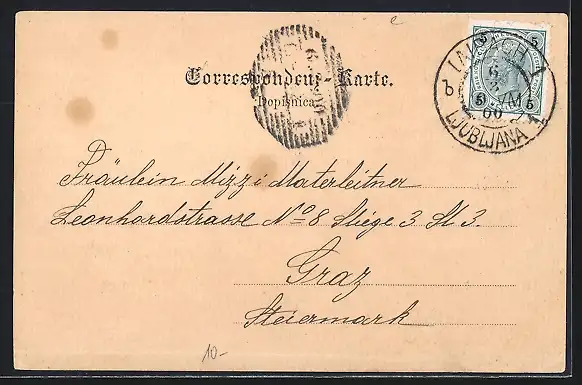 Correspondenz-Karte.
Dopisnica.
LAIBACH 1
LJUBLJANA 1
5 5
5 5
Fräulein Mizzi Materleitner
Leonhardstrasse No 8 Stiege 3 St 3.
Graz
Steiermark
10-